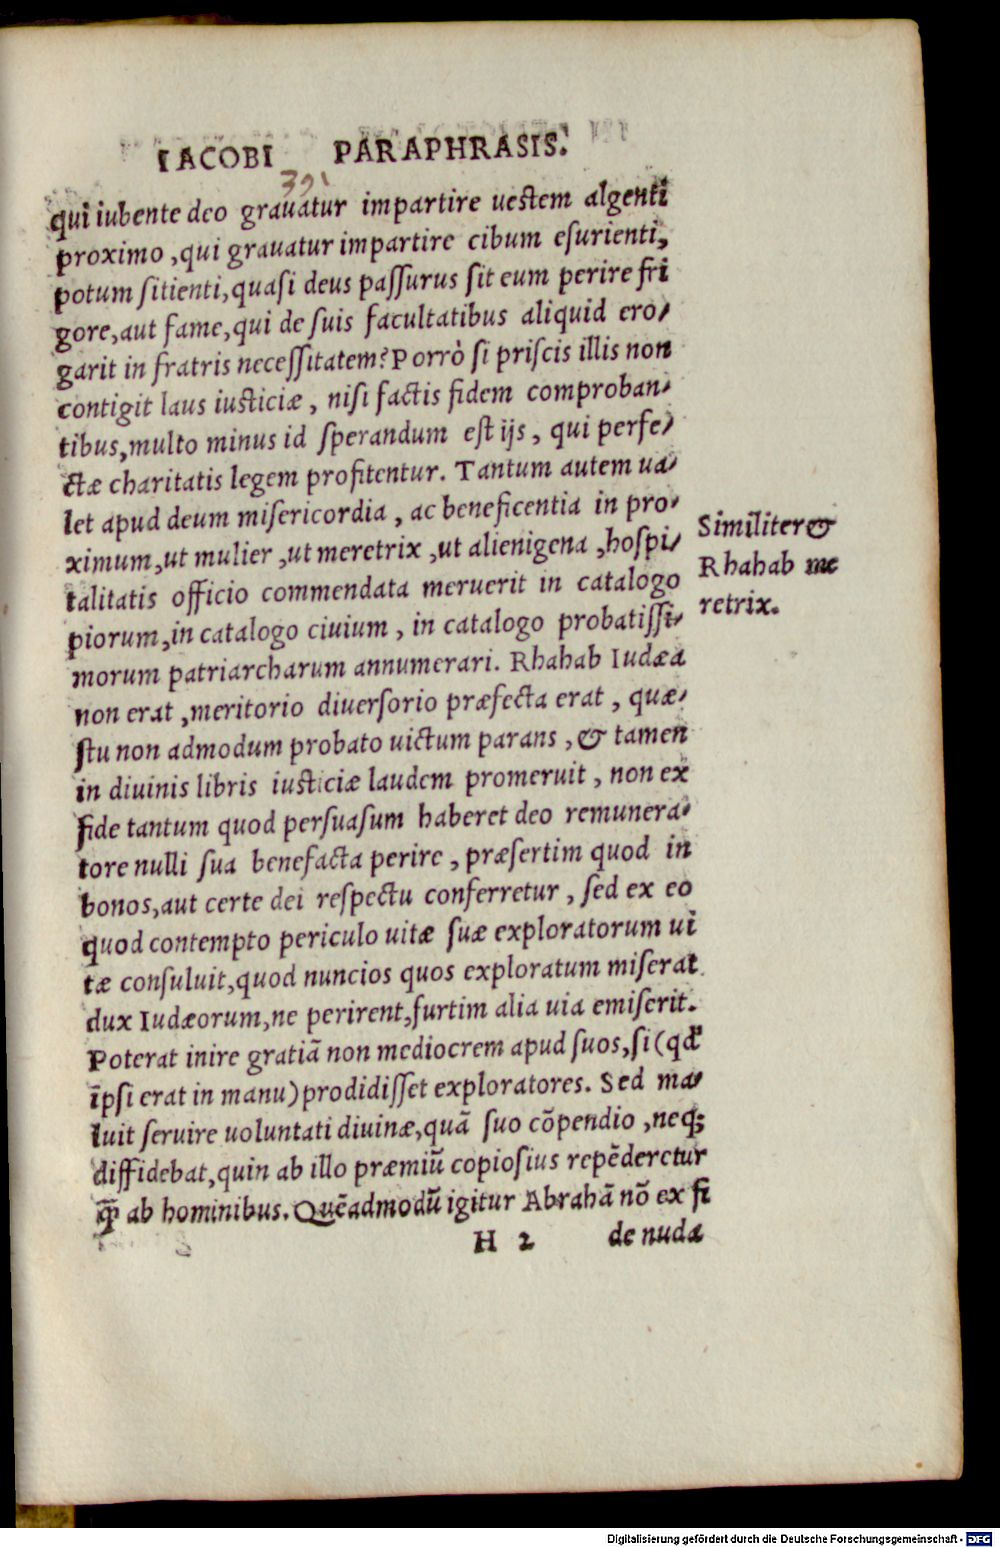 IACOBI PARAPHRASIS.
391
qui iubente deo grauatur impartire uestem algenti
proximo, qui grauatur impartire cibum esurienti,
potum sitienti, quasi deus passurus sit eum perire fri
gore, aut fame, qui de suis facultatibus aliquid ero-
garit in fratris necessitatem? Porrò si priscis illis non
contigit laus iusticiæ, nisi factis fidem comproban-
tibus, multo minus id sperandum est ijs, qui perfe-
ctæ charitatis legem profitentur. Tantum autem ua-
let apud deum misericordia, ac beneficentia in pro-
ximum, ut mulier, ut meretrix, ut alienigena, hospi-
talitatis officio commendata meruerit in catalogo
piorum, in catalogo ciuium, in catalogo probatissi-
morum patriarcharum annumerari. Rhahab Iudæa
non erat, meritorio diuersorio præfecta erat, quæ-
stu non admodum probato uictum parans, & tamen
in diuinis libris iusticiæ laudem promeruit, non ex
fide tantum quod persuasum haberet deo remunera-
tore nulli sua benefacta perire, præsertim quod in
bonos, aut certe dei respectu conferretur, sed ex eo
quod contempto periculo uitæ suæ exploratorum ui
tæ consuluit, quod nuncios quos exploratum miserat
dux Iudæorum, ne perirent, furtim alia uia emiserit.
Poterat inire gratiã non mediocrem apud suos, si (qđ
ĩpsi erat in manu) prodidisset exploratores. Sed ma-
luit seruire uoluntati diuinæ, quã suo cõpendio, neq;
diffidebat, quin ab illo præmiũ copiosius repẽderetur
q̃ ab hominibus. Quẽadmodũ igitur Abrahã nõ ex fi
H 2 de nuda
Similiter &
Rhahab me
retrix.
Digitalisierung gefördert durch die Deutsche Forschungsgemeinschaft - DFG